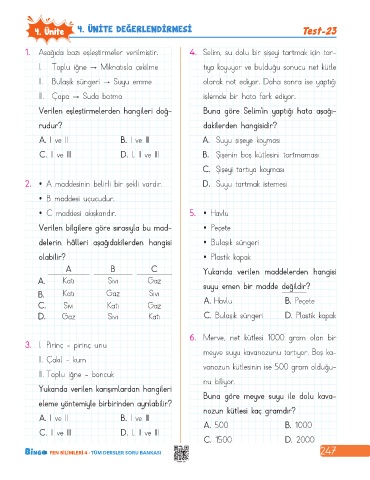 4. Ünite
4. ÜNİTE DEĞERLENDİRMESİ
Test-23
1. Aşağıda bazı eşleştirmeler verilmiştir.
I. Toplu iğne → Mıknatısla çekilme
II. Bulaşık süngeri → Suyu emme
III. Çapa → Suda batma
Verilen eşleştirmelerden hangileri doğ-
rudur?
A. I ve II B. I ve III
C. I ve III D. I, II ve III
2. • A maddesinin belirli bir şekli vardır.
• B maddesi uçucudur.
• C maddesi akışkandır.
Verilen bilgilere göre sırasıyla bu mad-
delerin hâlleri aşağıdakilerden hangisi
olabilir?
A B C
A. Katı Sıvı Gaz
B. Katı Gaz Sıvı
C. Sıvı Katı Gaz
D. Gaz Sıvı Katı
3. I. Pirinç - pirinç unu
II. Çakıl - kum
III. Toplu iğne - boncuk
Yukarıda verilen karışımlardan hangileri
eleme yöntemiyle birbirinden ayrılabilir?
A. I ve II B. I ve III
C. II ve III D. I, II ve III
4. Selim, su dolu bir şişeyi tartmak için tar-
tıya koyuyor ve bulduğu sonucu net kütle
olarak not ediyor. Daha sonra ise yaptığı
işlemde bir hata fark ediyor.
Buna göre Selim'in yaptığı hata aşağı-
dakilerden hangisidir?
A. Suyu şişeye koyması
B. Şişenin boş kütlesini tartmaması
C. Şişeyi tartıya koyması
D. Suyu tartmak istemesi
5. • Havlu
• Peçete
• Bulaşık süngeri
• Plastik kapak
Yukarıda verilen maddelerden hangisi
suyu emen bir madde değildir?
A. Havlu B. Peçete
C. Bulaşık süngeri D. Plastik kapak
6. Merve, net kütlesi 1000 gram olan bir
meyve suyu kavanozunu tartıyor. Boş ka-
vanozun kütlesinin ise 500 gram olduğu-
nu biliyor.
Buna göre meyve suyu ile dolu kava-
nozun kütlesi kaç gramdır?
A. 500 B. 1000
C. 1500 D. 2000
BİNGO FEN BİLİMLERİ 4 - TÜM DERSLER SORU BANKASI
247